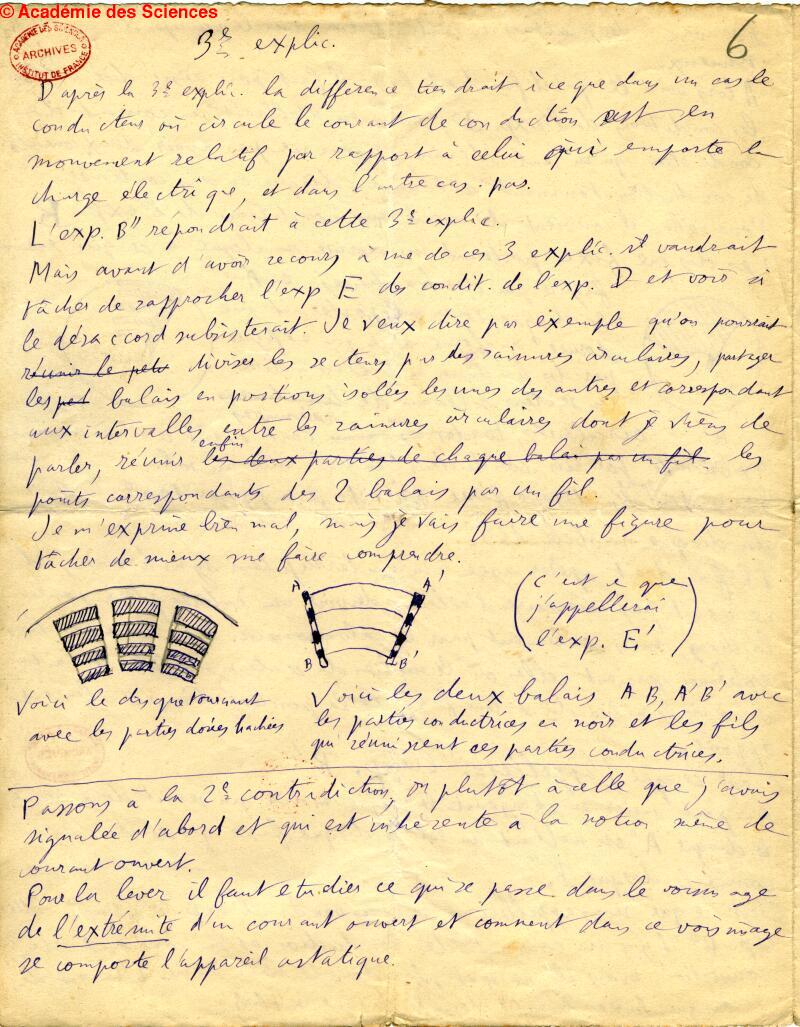 © Académie des Sciences
ACADÉMIE DES SCIENCES
ARCHIVES
INSTITUT DE FRANCE
6
3e explic.
D'après la 3e explic. la différence tiendrait à ce que dans un cas le
conducteur où circule le courant de conduction est en
mouvement relatif par rapport à celui qui emporte la
charge électrique, et dans l'autre cas pas.
L'exp. B" répondrait à cette 3e explic.
Mais avant d'avoir recours à une de ces 3 explic. il vaudrait
tâcher de rapprocher l'exp E des condit. de l'exp. D et voir si
le désaccord subsisterait. Je veux dire par exemple qu'on pourrait
réunir le petit diviser les secteurs par des rainures circulaires, partager
les pet balais en portions isolées les unes des autres et correspondant
aux intervalles entre les rainures circulaires dont je viens de
parler, réunir enfin les deux parties de chaque balai par un fil. les
points correspondants des 2 balais par un fil.
Je m'exprime bien mal, mais je vais faire une figure pour
tâcher de mieux me faire comprendre.
A A'
B B'
(c'est ce que
j'appellerai
l'exp. E')
Voici le disque tournant
avec les parties dorées hachées
Voici les deux balais AB, A'B' avec
les parties conductrices en noir et les fils
qui réunissent ces parties conductrices.
Passons à la 2e contradiction, ou plutôt à celle que j'avais
signalée d'abord et qui est inhérente à la notion même de
courant ouvert.
Pour la lever il faut etudier ce qui se passe dans le voisinage
de l'extrémité d'un courant ouvert et comment dans ce voisinage
se comporte l'appareil astatique.